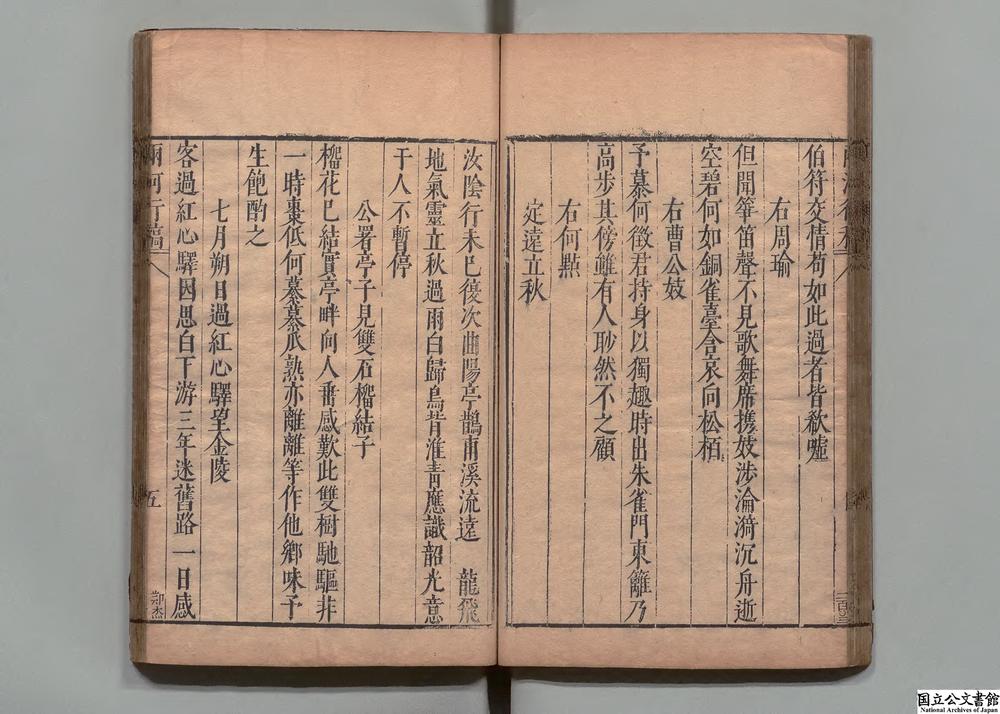 伯符交情苟如此過者皆欷噓
右周瑜
但聞箏笛聲不見歌舞席携妓涉淪漪沉舟逝
空碧何如銅雀臺含哀向松栢
右曹公妓
予慕何徵君持身以獨趣時出朱雀門東籬乃
高步其傍雖有人眇然不之顧
右何點
定遠立秋
汝陰行未已復次曲陽亭鵲甫溪流遠 龍飛
地氣靈立秋過雨白歸鳥背淮青應識韶光意
于人不暫停
公署亭子見雙石榴結子
榴花已結實亭畔向人番感歎此雙樹馳驅非
一時棗低何纂纂瓜熟亦離離等作他鄉味予
生飽酌之
七月朔日過紅心驛望金陵
客過紅心驛因思白下游三年迷舊路一日感
兩河行稿
五
鄭杰
国立公文書館
National Archives of Japan